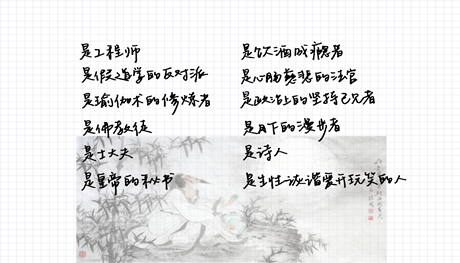 是工程师
是假道学的反对派
是瑜伽术的修炼者
是佛教徒
是士大夫
是皇帝的秘书
是饮酒成瘾者
是心肠慈悲的法官
是政治上的坚持己见者
是月下的漫步者
是诗人
是生性诙谐爱开玩笑的人